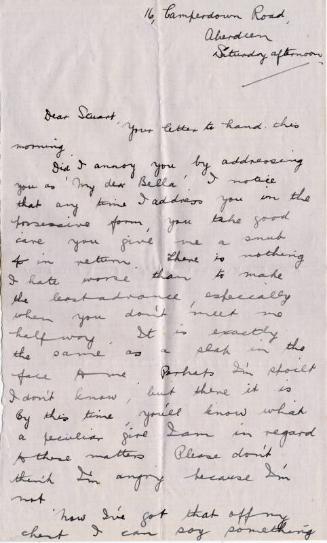 16, Camperdown Road,
Aberdeen
Saturday afternoon
Dear Stuart,
Your letter to hand this
morning.
Did I annoy you by addressing
you as 'My dear Bella'. I notice
that any time I address you in the
possessive form, you take good
care you give me a snub
in return. There is nothing
I hate worse than to make
the least advance, especially
when you don't meet me
half way. It is exactly
the same as a slap in the
face to me. Perhaps I'm spoilt
I don't know, but there it is
By this time you'll know what
a peculiar I am in regard
to those matters Please don't
think I'm angry because I'm
not
Now I've got that off my
chest I can say something